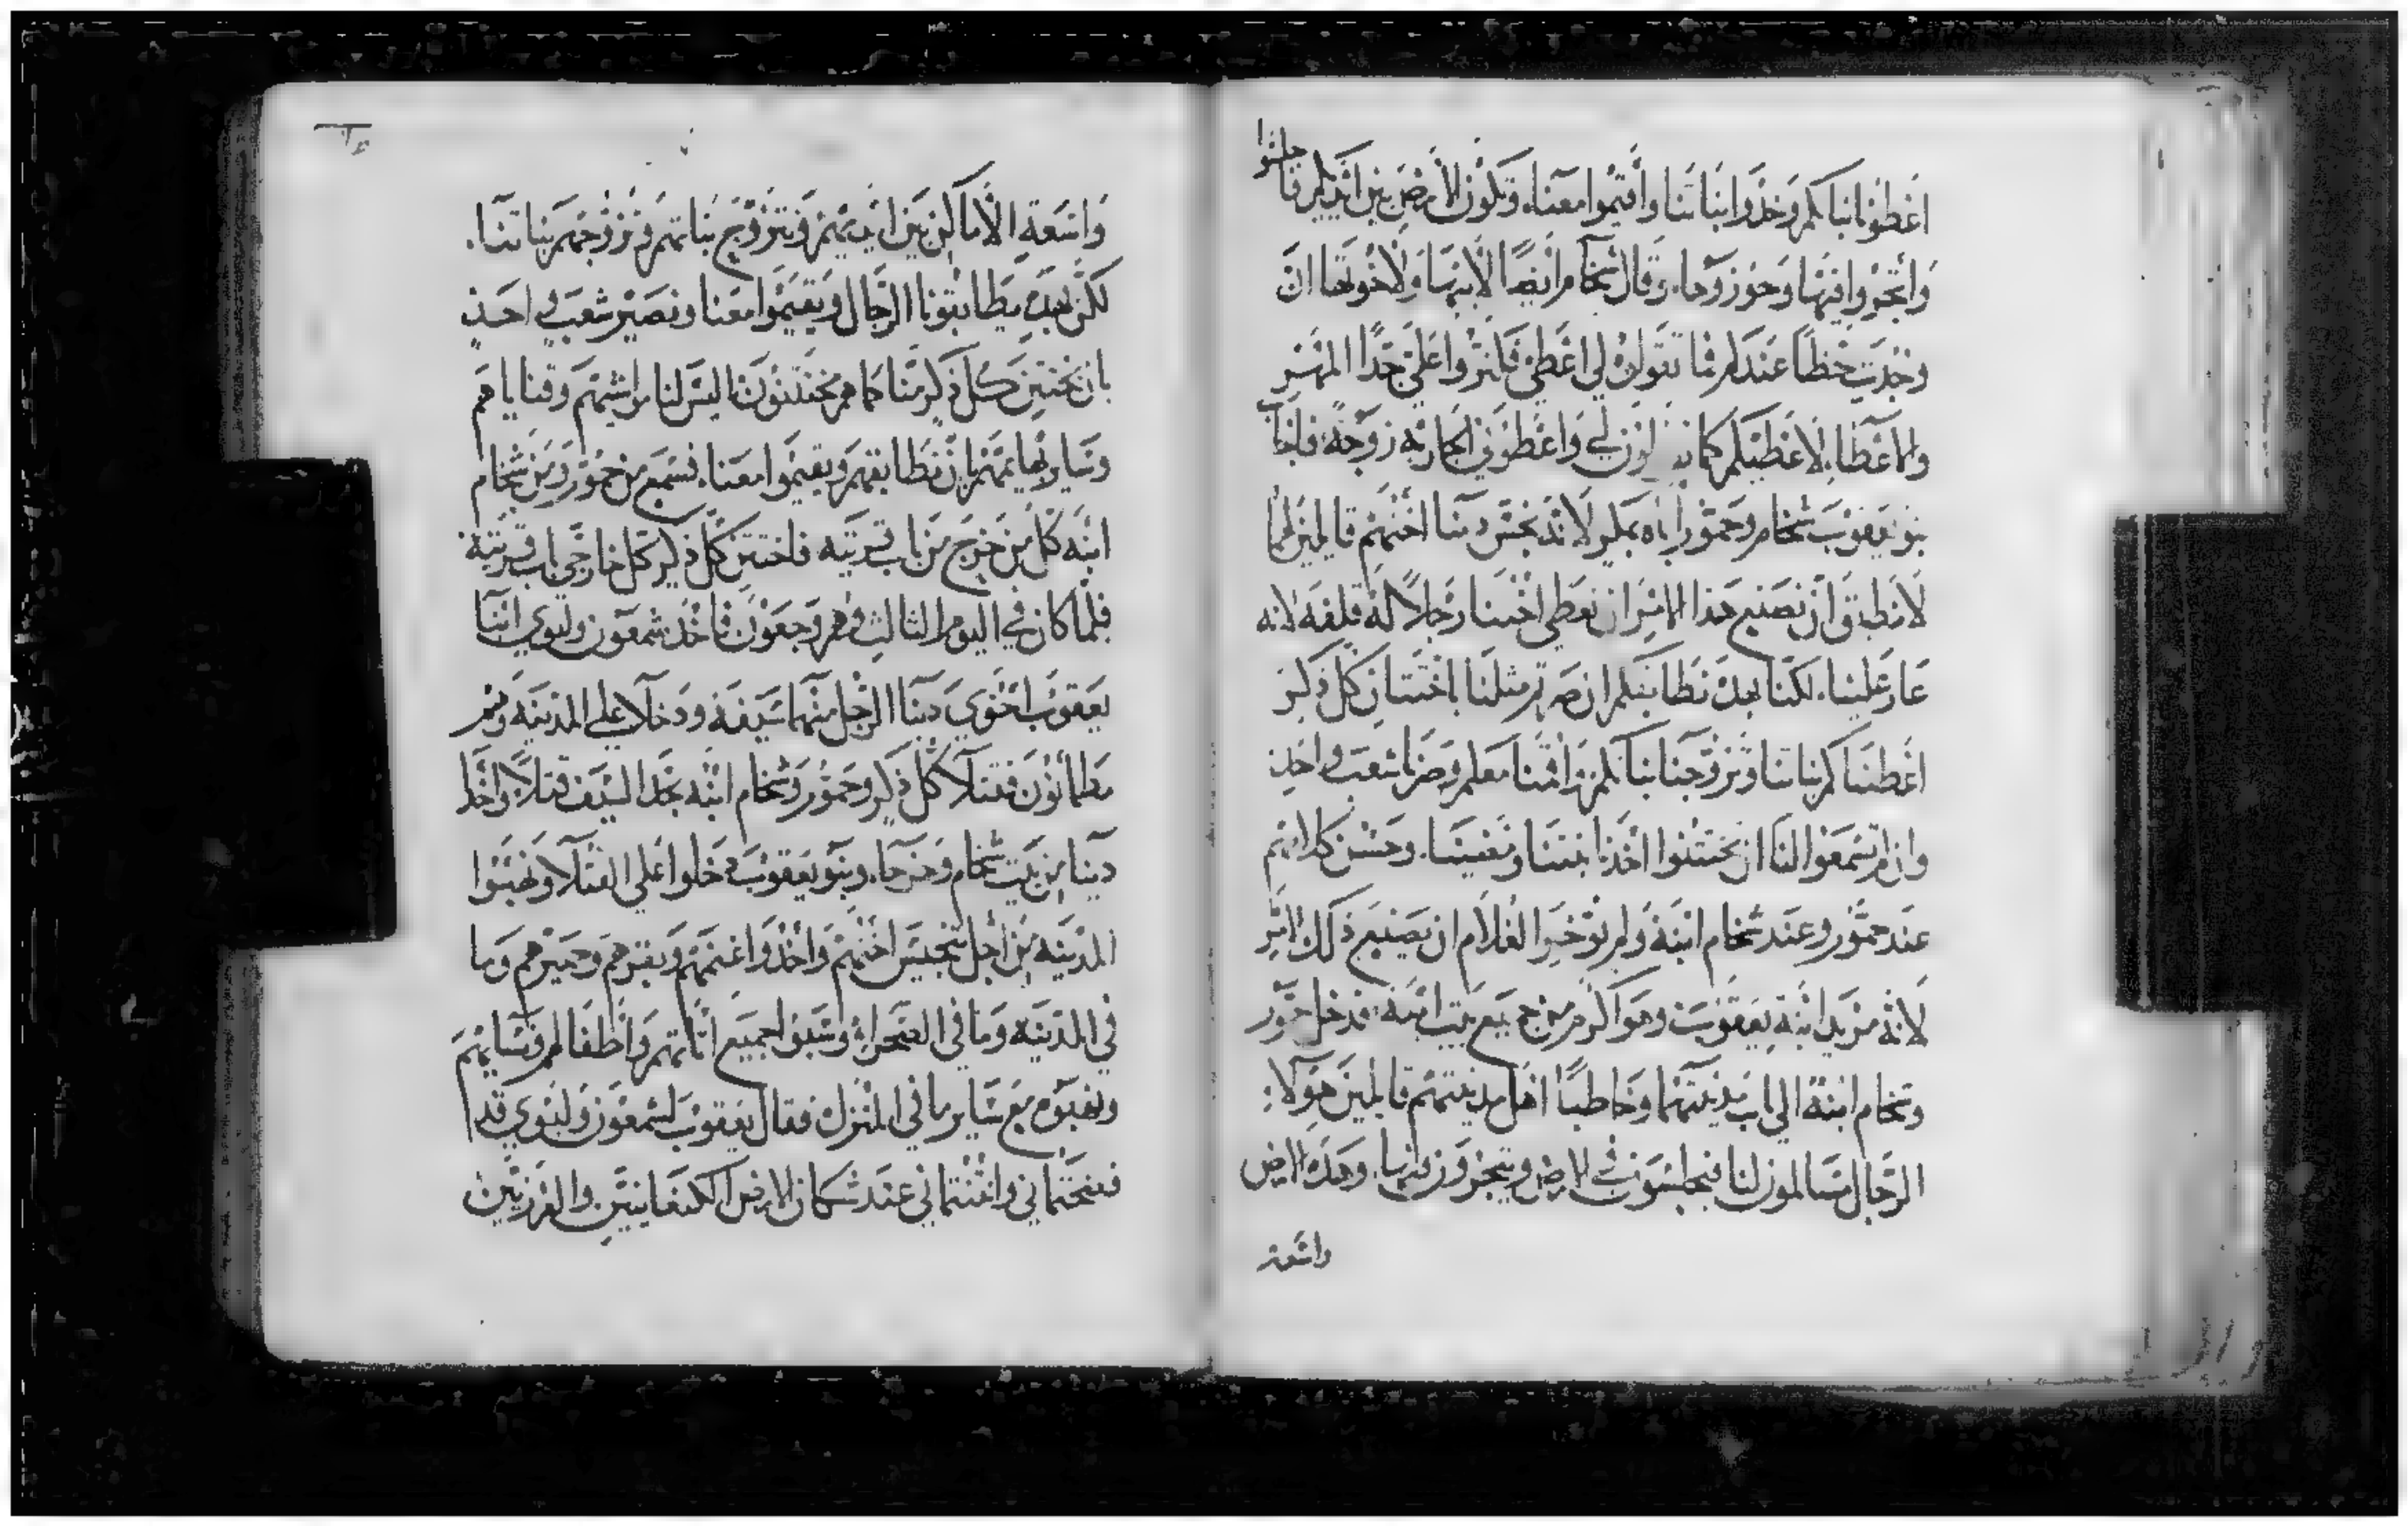 اعطونا بناتكم وخذوا بناتنا واقيموا معنا. وتكون الارض بين ايديكم فاجلسوا
واتجروا فيها وحوزوها. وقال شخام ايضا لابيها ولاخوتها ان
وجدت حظا عندكم فما تقولون لي اعطي فاكثروا علي جدا المهر
والاعطا. لاعطيكم كما لون لي واعطوني الجاريه زوجة. فاجاب
بنو يعقوب شخام وحمور اباه بمكر لانه نجس دينا اختهم قايلين لهما
لا نطيق ان نصنع هذا الامر ان نعطي اختنا رجلا له قلفه لانه
عار علينا. لكنا بهذه نطابقكم ان صرتم مثلنا باختتان كل ذكر
اعطيناكم بناتنا وتزوجنا بناتكم واقمنا معكم وصرنا شعب واحد
وان لم تسمعوا لنا ان تختتنوا اخذنا بنتنا ومضينا. وحسن كلامهم
عند حمور وعند شخام ابنه ولم يوخر الغلام ان يصنع ذلك الامر
لانه مريد ابنة يعقوب وهو اكرم من جميع بيت ابيه. فدخل حمور
وشخام ابنه الي باب مدينتهما وخاطبا اهل مدينتهم قايلين هولاء
الرجال مسالمون لنا فيجلسون في الارض ويتجرون فيها. وهذه الارض
واسعة
واسعة الاماكن بين ايديهم ونتزوج بناتهم ونزوجهم بناتنا.
لكن بهذه يطابقونا الرجال ويقيموا معنا ونصير شعب واحد
بان نختتن كل ذكر منا كما هم مختتنون اليس لنا مواشيهم وقناياهم
وساير بهايمهم بان نطابقهم ويقيموا معنا. فسمع من حمور ومن شخام
ابنه كل من خرج من باب قريته فاختتن كل ذكر كل خارجي باب قريته
فلما كان في اليوم الثالث وهم وجعون فاخذ شمعون ولوي ابنا
يعقوب اخوي دينا الرجل منهما سيفه ودخلا علي المدينه وهم
مطمانون فقتلا كل ذكر وحمور وشخام ابنه بحد السيف قتلا واخذا
دينا من بيت شخام وخرجا. وبنو يعقوب دخلوا علي القتلا ونهبوا
المدينه من اجل تنجيس اختهم واخذوا غنمهم وبقرهم وحميرهم وما
في المدينه وما في الصحراء وسبوا جميع اثاثهم واطفالهم ونسايهم
ونهبوهم مع ساير ما في المنزل فقال يعقوب لشمعون ولوي قد
فضحتماني وافنتماني عند سكان الارض الكنعانيين والفرزيين